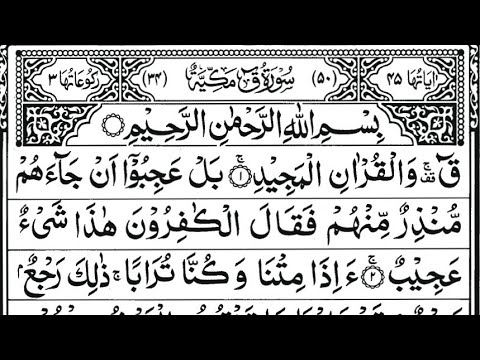 اٰیَاتُهَا ۴۵ (۵۰) سُوْرَةُ قٓ مَكِّيَّةٌ (۳۴) رُكُوْعَاتُهَا ۳
بِسْمِ اللّٰهِ الرَّحْمٰنِ الرَّحِيْمِ
قٓ ۚ وَالْقُرْاٰنِ الْمَجِيْدِ ۚ﴿۱﴾ بَلْ عَجِبُوْۤا اَنْ جَآءَهُمْ
مُّنْذِرٌ مِّنْهُمْ فَقَالَ الْكٰفِرُوْنَ هٰذَا شَيْءٌ
عَجِيْبٌ ۚ﴿۲﴾ ءَاِذَا مِتْنَا وَكُنَّا تُرَابًا ۚ ذٰلِكَ رَجْعٌۢ